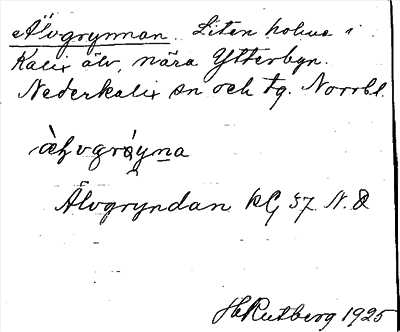 Älvgrynnan. Liten holme i
Kalix älv, nära Ytterbyn.
Nederkalix sn och tg. Norrb.l.
Älvgryndan kG 57 N.Ö
HRutberg 1925